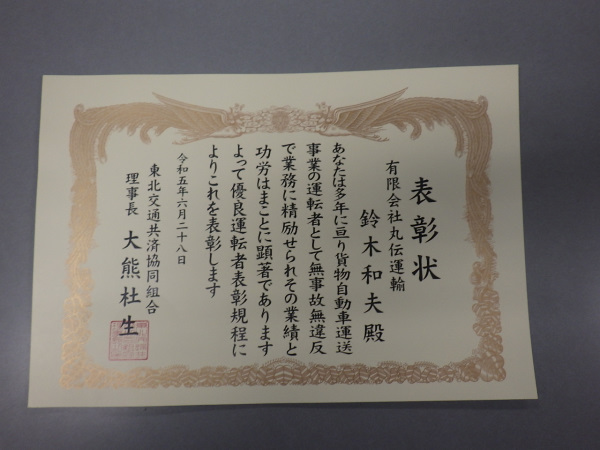 表彰状
有限会社丸伝運輸
鈴木和夫殿
あなたは多年に亘り貨物自動車運送
事業の運転者として無事故無違反
で業務に精励せられその業績と
功労はまことに顕著であります
よって優良運転者表彰規程に
よりこれを表彰します
令和五年六月二十八日
東北交通共済協同組合
理事長 大熊杜生